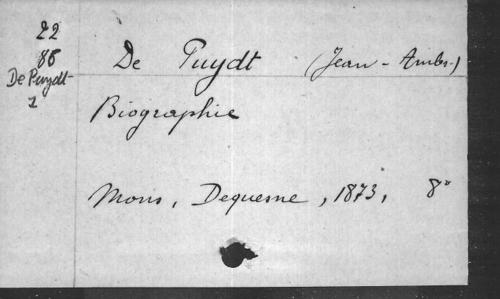 22
86
De Puydt
1
De Puydt (Jean-Ambr.)
Biographie
Mons, Dequesne, 1873, 8°